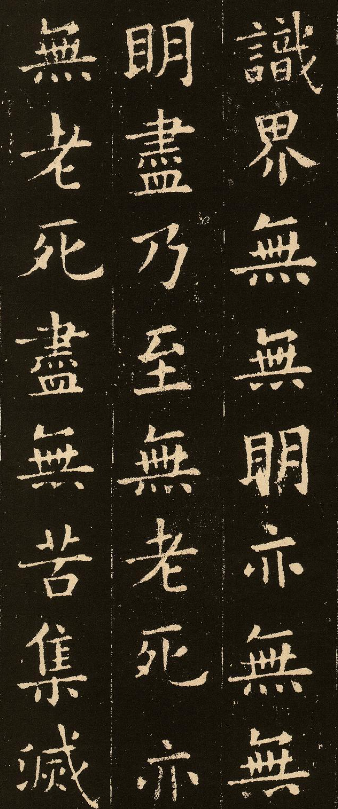 識界無無明亦無無
明盡乃至無老死亦
無老死盡無苦集滅